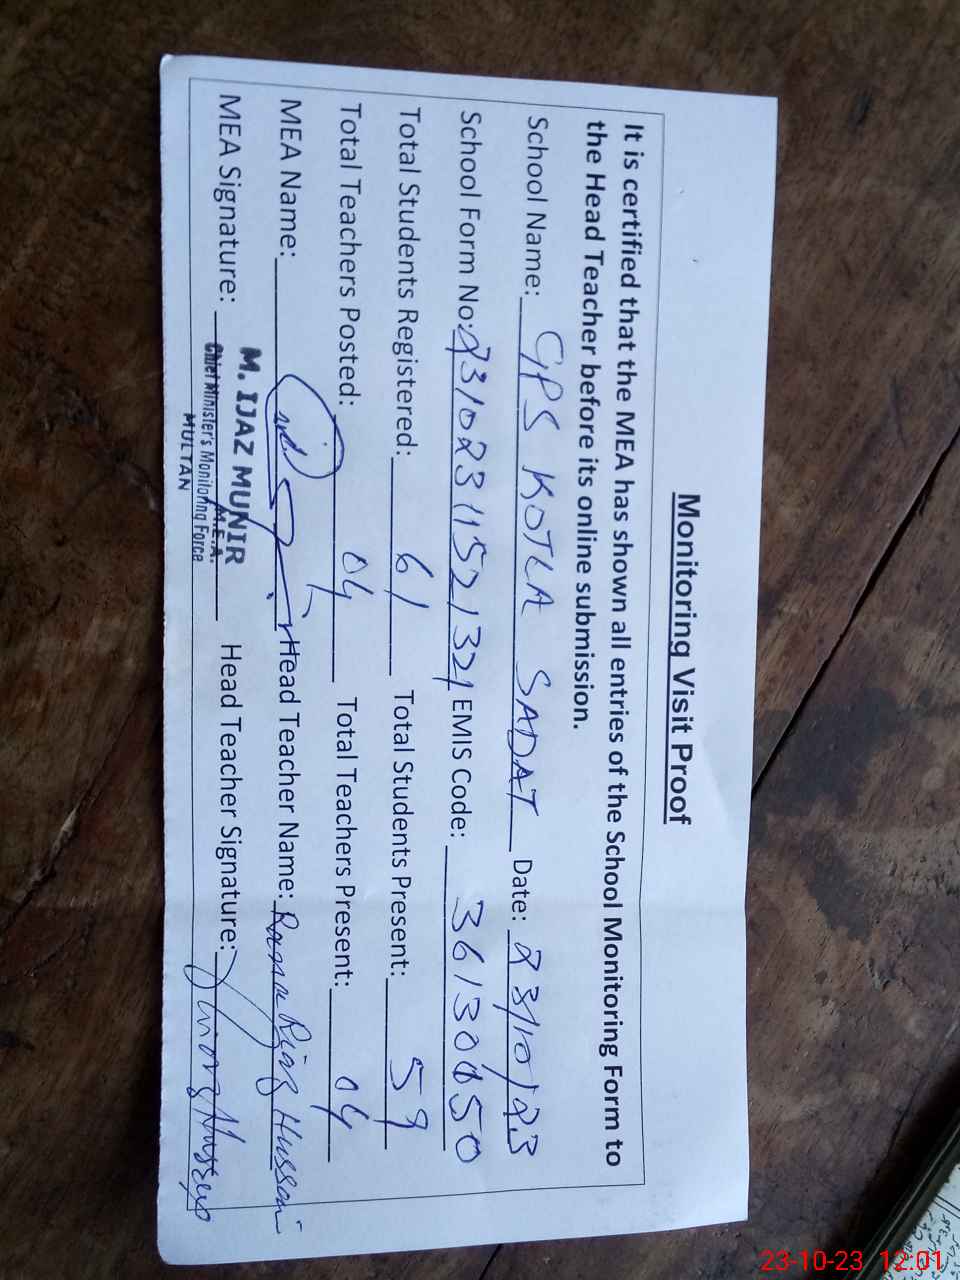 Monitoring Visit Proof
It is certified that the MEA has shown all entries of the School Monitoring Form to
the Head Teacher before its online submission.
School Name: GPS KOTLA SADAT Date: 23/10/23
School Form No: 23102311521321 EMIS Code: 36130050
Total Students Registered: 61 Total Students Present: 59
Total Teachers Posted: 04 Total Teachers Present: 04
MEA Name: Head Teacher Name: Riaz Hussain
M. IJAZ MUNIR
MEA Signature: M.E.A. Head Teacher Signature:
Chief Minister's Monitoring Force
MULTAN
23-10-23 12:01